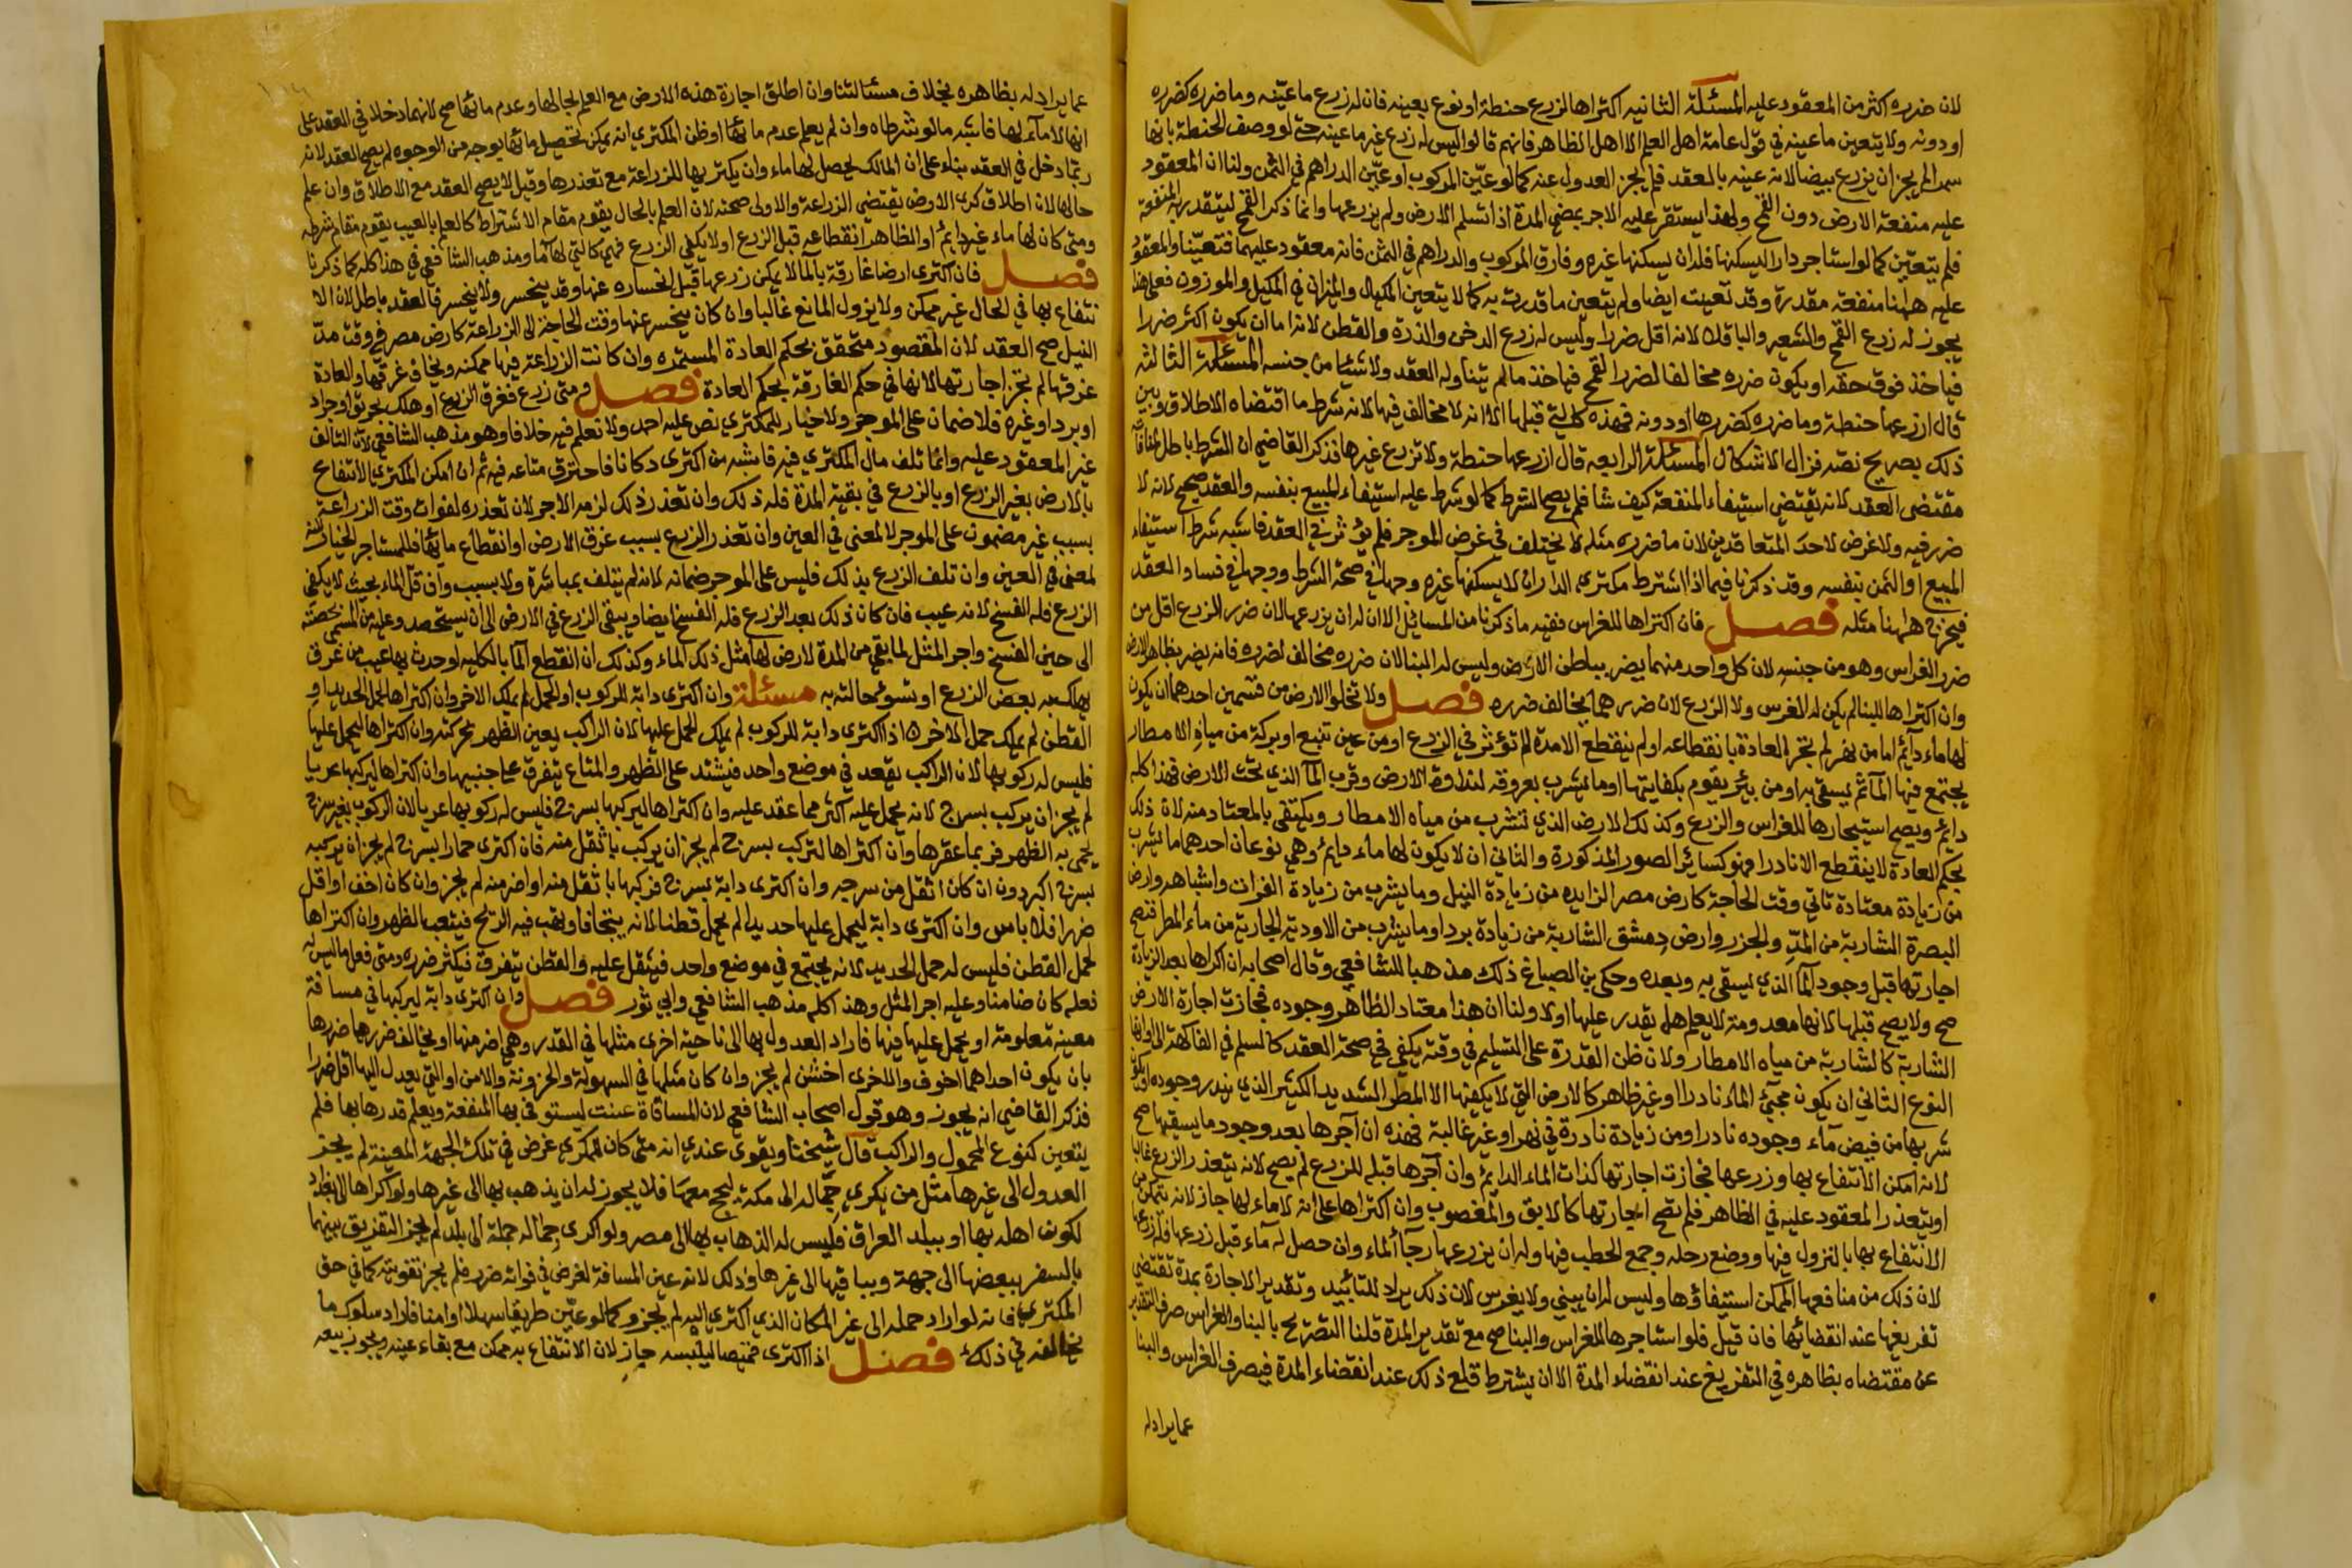 لان ضرره اكثر من المعقود عليه المسئلة الثانيه اكتراها لزرع حنطة او نوع بعينه فان له زرع ما عيّنه وما ضرره كضرره
او دونه ولا يتعين ما عينه في قول عامة اهل العلم الا اهل الظاهر فانهم قالوا ليس له زرع غير ما عينه حتى لو وصف الحنطة بانها
سمرا لم يجز ان يزرع بيضا لانه عينه بالعقد فلم يجز العدول عنه كما لو عيّن المركوب او عيّن الدراهم في الثمن ولنا ان المعقود
عليه منفعة الارض دون القمح ولهذا يستقر عليه الاجر بمضي المدة اذا تسلم الارض ولم يزرعها وانما ذكر القمح ليتقدر به المنفعة
فلم يتعيّن كما لو استاجر دارا ليسكنها فله ان يسكنها غيره وفارق المركوب والدراهم في الثمن فانه معقود عليهما فتعيّنا والمعقود
عليه ههنا منفعة مقدرة وقد تعينت ايضا ولم يتعين ما قدرت به كما لا يتعين المكيال والميزان في المكيل والموزون فعلى هذا
يجوز له زرع القمح والشعير والباقلا لانه اقل ضررا وليس له زرع الدخن والذرة والقطن لانه اما ان يكون اكثر ضررا
فياخذ فوق حقه او يكون ضرره مخالفا لضرر القمح فياخذ ما لم يتناوله العقد ولا شيئا من جنسه المسئلة الثالثة
قال ازرعها حنطة وما ضرره كضررها او دونه فهذه كالتي قبلها الا انه لا مخالف فيها لانه شرط ما اقتضاه الاطلاق وبين
ذلك بصريح نصّه فزال الاشكال المسئلة الرابعه قال ازرعها حنطة ولا تزرع غيرها فذكر القاضي ان الشرط باطل لمنافاته
مقتضى العقد لانه يقتضي استيفاء المنفعة كيف شا فلم يصح الشرط كما لو شرط عليه استيفاء المبيع بنفسه والعقد صحيح لانه لا
ضرر فيه ولا غرض لاحد المتعاقدين لان ما ضرره مثله لا يختلف في غرض الموجر فلم يؤثر في العقد فاشبه شرط استيفاء
المبيع او الثمن بنفسه وقد ذكرنا فيما اذا اشترط مكتري الدار ان لا يسكنها غيره وجها في صحة الشرط ووجها في فساد العقد
فيخرج ههنا مثله فصل فان اكتراها للغراس ففيه ما ذكرنا من المسائل الا ان له ان يزرعها لان ضرر الزرع اقل من
ضرر الغراس وهو من جنسه لان كل واحد منهما يضر بباطن الارض وليس له البنا لان ضرره مخالف لضرره فانه يضر بظاهر الارض
وان اكتراها للبنا لم يكن له الغرس ولا الزرع لان ضررهما يخالف ضرره فصل ولا تخلوا الارض من قسمين احدهما ان يكون
لها ماء دآئم اما من نهر لم تجر العادة بانقطاعه او لم ينقطع الا مدة لا تؤثر في الزرع او من عين تنبع او بركة من مياه الامطار
يجتمع فيها المآ ثم يسقى به او من بئر يقوم بكفايتها او ما يشرب بعروقه لنداوة الارض وقرب المآ الذي تحت الارض فهذا كله
دايم ويصح استيجارها للغراس والزرع وكذلك الارض الذي تشرب من مياه الامطار ويكتفى بالمعتاد منه لان ذلك
بحكم العادة لا ينقطع الا نادرا فهو كسائر الصور المذكورة والثاني ان لا يكون لها ماء دايم وهي نوعان احدهما ما يشرب
من زيادة معتادة تاتي وقت الحاجة كارض مصر الزايده من زيادة النيل وما يشرب من زيادة الفرات واشباهه وارض
البصرة الشاربة من المدّ والجزر وارض دمشق الشاربة من زيادة بردا وما يشرب من الاودية الجارية من ماء المطر فتصح
اجارتها قبل وجود المآ الذي يسقى به وبعده وحكى بن الصباغ ذلك مذهبا للشافعي وقال اصحابه ان اكراها بعد الزيادة
صح ولا يصح قبلها لانها معدومة لا يعلم هل يقدر عليها او لا ولنا ان هذا معتاد الظاهر وجوده فجازت اجارة الارض
الشاربة كالشاربة من مياه الامطار ولان ظن القدرة على التسليم في وقته يكفي في صحة العقد كالسلم في الفاكهة الى اوانها
النوع الثاني ان يكون مجيئ الماء نادرا او غير ظاهر كالارض التي لا يكفيها الا المطر الشديد الكثير الذي يندر وجوده او يكون
شربها من فيض مآء وجوده نادر او من زيادة نادرة في نهر او غير غالبة فهذه ان آجرها بعد وجود ما يسقيها صح
لانه امكن الانتفاع بها وزرعها فجازت اجارتها كذات الماء الدايم وان آجرها قبله للزرع لم يصح لانه يتعذر الزرع غالبا
او يتعذر المعقود عليه في الظاهر فلم تصح اجارتها كالابق والمغصوب وان اكتراها على انه لا ماء لها جاز لانه يتمكن من
الانتفاع بها بالنزول فيها ووضع رحله وجمع الحطب فيها وله ان يزرعها رجآ الماء وان حصل له مآء قبل زرعها فله زرعها
لان ذلك من منافعها الممكن استيفاؤها وليس له ان يبني ولا يغرس لان ذلك يراد للتابيد وتقدير الاجارة بمدة تقتضي
تفريغها عند انقضائها فان قيل فلو استاجرها للغراس والبنا صح مع تقدير المدة قلنا التصريح بالبنا والغراس صرف التقدير
عن مقتضاه بظاهره في التفريغ عند انقضاء المدة الا ان يشترط قلع ذلك عند انقضاء المدة فيصرف الغراس والبنا
عما يراد له
عما يراد له بظاهره بخلاف مسئالتنا وان اطلق اجارة هذه الارض مع العلم بحالها وعدم مائها صح لانهما دخلا في العقد على
انها لا مآء لها فاشبه ما لو شرطاه وان لم يعلم عدم مائها او ظن المكتري انه يمكن تحصيل مائها بوجه من الوجوه لم يصح العقد لانه
ربما دخل في العقد بناء على ان المالك يحصل لها ماء وان يكتريها للزراعة مع تعذرها وقيل لا يصح العقد مع الاطلاق وان علم
حالها لان اطلاق كرى الارض يقتضي الزراعة والاولى صحته لان العلم بالحال يقوم مقام الاشتراط كالعلم بالعيب يقوم مقام شرطه
ومتى كان لها ماء غير دايم او الظاهر انقطاعه قبل الزرع او لا يكفي الزرع فهي كالتي لا مآ لها ومذهب الشافعي في هذا كله كما ذكرنا
فصل فان اكترى ارضا غارقة بالمآ لا يمكن زرعها قبل انحساره عنها وقد ينحسر ولا ينحسر فالعقد باطل لان الا
نتفاع بها في الحال غير ممكن ولا يزول المانع غالبا وان كان ينحسر عنها وقت الحاجة الى الزراعة كارض مصر في وقت مدّ
النيل صح العقد لان المقصود متحقق بحكم العادة المستمره وان كانت الزراعة فيها ممكنه ويخاف غرقها والعادة
غرقها لم تجز اجارتها لانها في حكم الغارقة بحكم العادة فصل ومتى زرع فغرق الزرع او هلك بحريق او جراد
او برد او غيره فلا ضمان على الموجر ولا خيار للمكتري نص عليه احمد ولا نعلم فيه خلافا وهو مذهب الشافعي لان التالف
غير المعقود عليه وانما تلف مال المكتري فيه فاشبه من اكترى دكانا فاحترق متاعه فيه ثم ان امكن المكتري الانتفاع
بالارض بغير الزرع او بالزرع في بقية المدة فله ذلك وان تعذر ذلك لزمه الاجر لان تعذره لفوات وقت الزراعة
بسبب غير مضمون على الموجر لا لمعنى في العين وان تعذر الزرع بسبب غرق الارض او انقطاع مائها فللمستاجر الخيار لانه
لمعنى في العين وان تلف الزرع بذلك فليس على الموجر ضمانه لانه لم يتلف بمباشرة ولا بسبب وان قلّ الماء بحيث لا يكفي
الزرع فله الفسخ لانه عيب فان كان ذلك بعد الزرع فله الفسخ ايضا ويبقى الزرع في الارض الى ان يستحصد وعليه من المسمى بحصته
الى حين الفسخ واجر المثل لما بقي من المدة لارض لها مثل ذلك الماء وكذلك ان انقطع المآ بالكليه او حدث بها عيب من غرق
يهلك به بعض الزرع او تسوء حالته به مسئلة وان اكترى دابة للركوب او الحمل لم يملك الاخر وان اكتراها لحمل الحديد او
القطن لم يملك حمل الاخر ه اذا اكترى دابة للركوب لم يملك الحمل عليها لان الراكب يعين الظهر بحركته وان اكتراها ليحمل عليها
فليس له ركوبها لان الراكب يقعد في موضع واحد فيشتد على الظهر والمتاع يتفرق على جنبيها وان اكتراها ليركبها عريا
لم يجز ان يركب بسرج لانه يحمل عليه اكثر مما عقد عليه وان اكتراها ليركبها بسرج فليس له ركوبها عريا لان الركوب بغير سرج
يحمى به الظهر فربما عقرها وان اكتراها لتركب بسرج لم يجز ان يركب باثقل منه فان اكترى حمارا بسرج لم يجز ان يركبه
بسرج البرذون ان كان اثقل من سرجه وان اكترى دابة بسرج فركبها باثقل منه او اضر منه لم يجز وان كان اخف او اقل
ضررا فلا باس وان اكترى دابة ليحمل عليها حديدا لم يحمل قطنا لانه يتجافا ويهب فيه الريح فيتعب الظهر وان اكتراها
لحمل القطن فليس له حمل الحديد لانه يجتمع في موضع واحد فيثقل عليه والقطن يتفرق فيكثر ضرره ومتى فعل ما ليس له
فعله كان ضامنا وعليه اجر المثل وهذا كله مذهب الشافعي وابي ثور فصل وان اكترى دابة ليركبها في مسافة
معينة معلومة او يحمل عليها فيها فاراد العدول بها الى ناحية اخرى مثلها في القدر وهي اضر منها او يخالف ضررها ضررها
بان يكون احداهما اخوف والاخرى اخشن لم يجز وان كان مثلها في السهولة والحزونة والامن او التي يعدل اليها اقل ضررا
فذكر القاضي انه يجوز وهو قول اصحاب الشافعي لان المسافة عينت ليستوفي بها المنفعة ويعلم قدرها بها فلم
يتعين كنوع المحمول والراكب قال شيخنا ويقوى عندي انه متى كان للمكري غرض في تلك الجهة المعينة لم يجز
العدول الى غيرها مثل من يكري جماله الى مكة ليحج معها فلا يجوز له ان يذهب بها الى غيرها ولو اكراها الى بغداد
لكون اهله بها او ببلد العراق فليس له الذهاب بها الى مصر ولو اكرى جماله جملة الى بلد لم يجز التفريق بينها
بالسفر ببعضها الى جهة وبباقيها الى غيرها وذلك لانه عين المسافة لغرض في فواته ضرر فلم يجز تفويته كما في حق
المكتري فانه لو اراد حمله الى غير المكان الذي اكترى اليه لم يجز وكما لو عيّن طريقا سهلا او امنا فاراد سلوك ما
يخالفه في ذلك فصل اذا اكترى قميصا ليلبسه جاز لان الانتفاع به ممكن مع بقاء عينه ويجوز بيعه